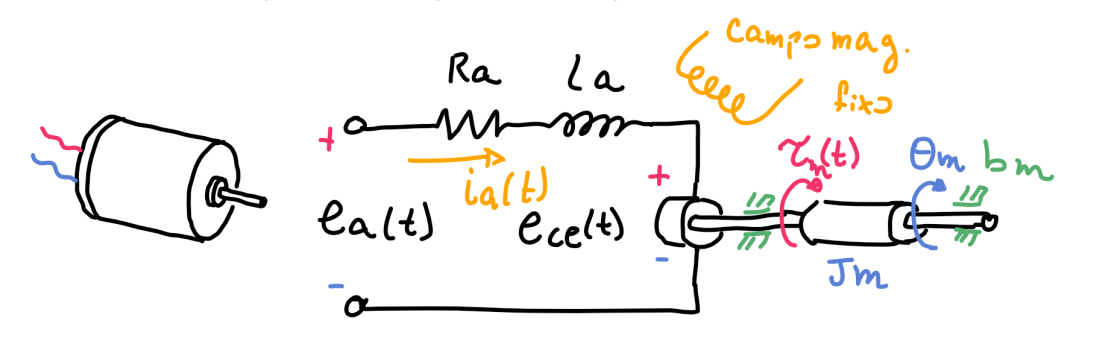 Campo mag.
fixo
Ra La
+
ia(t)
ea(t)
-
+
ece(t)
-
τm(t)
θm bm
Jm